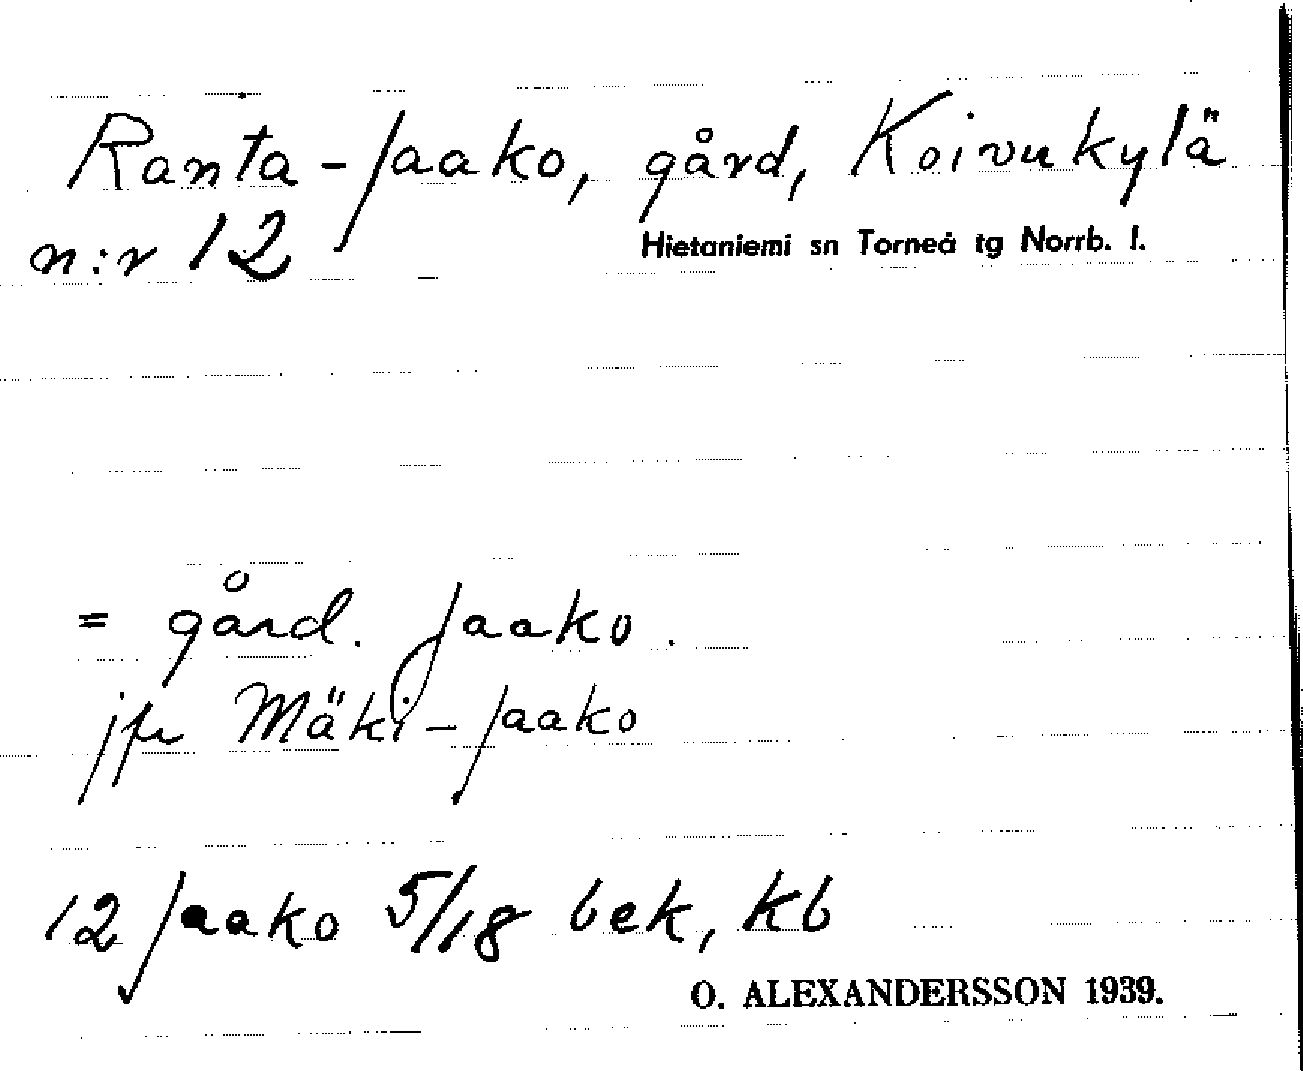 Ranta-Jaako, gård, Koivukylä
n:r 12
Hietaniemi sn Torneå tg Norrb. l.
= gård. Jaako.
jfr Mäki-Jaako
12 Jaako 5/18 bek, kb
O. ALEXANDERSSON 1939.